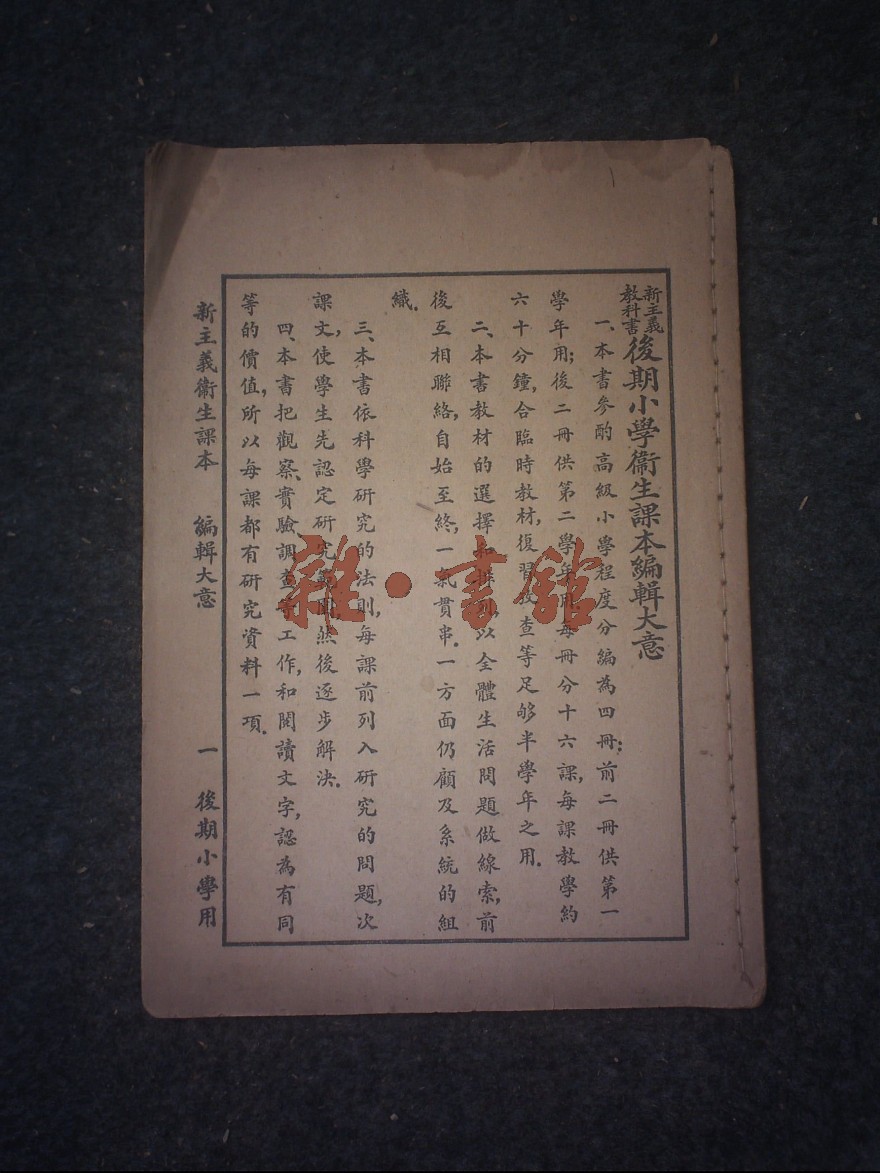 新主義教科書後期小學衞生課本編輯大意
一、本書參酌高級小學程度分編為四冊；前二冊供第一
學年用；後二冊供第二學年用，每冊分十六課，每課教學約
六十分鐘，合臨時教材，復習 查等足够半學年之用．
二、本書教材的選擇和排列，以全體生活問題做線索，前
後互相聯絡，自始至終，一氣貫串．一方面仍顧及系統的組
織．
三、本書依科學研究的法則，每課前列入研究的問題，次
課文，使學生先認定研究範圍，然後逐步解決．
四、本書把觀察、實驗調查等工作，和閱讀文字，認為有同
等的價值，所以每課都有研究資料一項．
新主義衞生課本 編輯大意 一 後期小學用
雜·書館